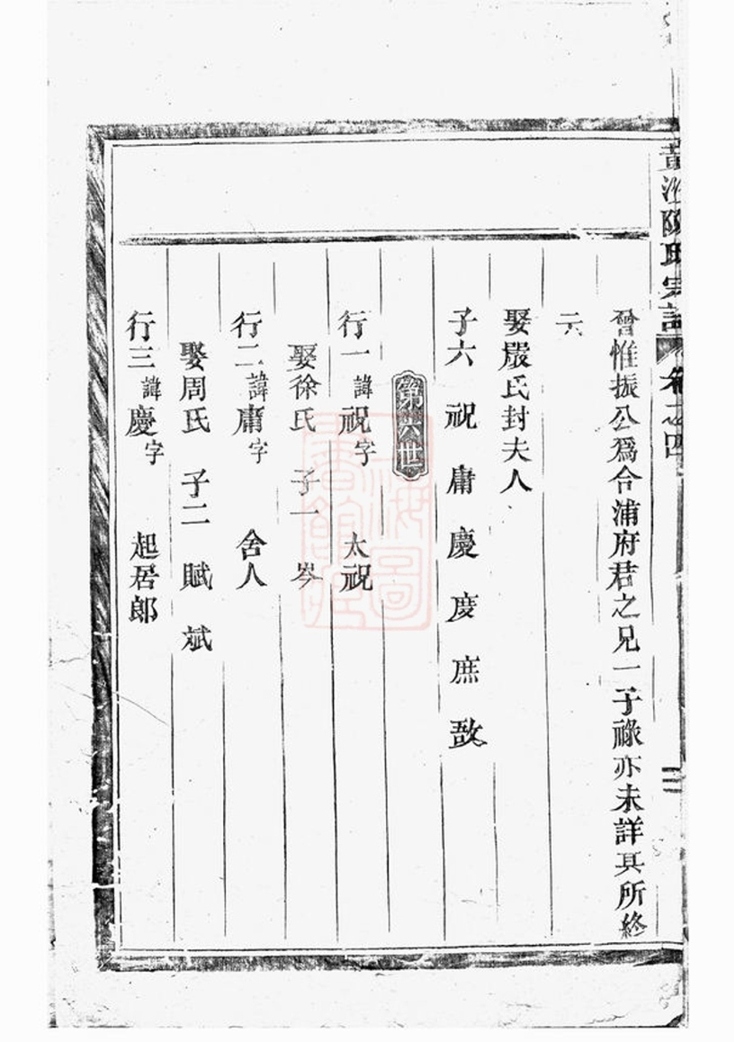 黃沚陳氏宗譜 卷之四 二
曾惟振公爲合浦府君之兄一子祿亦未詳其所終
云
娶嚴氏封夫人
子六 祝 庸 慶 度 庶 敔
第六世
行一諱祝字 太祝
娶徐氏 子一 岑
行二諱庸字 舍人
娶周氏 子二 賦 斌
行三諱慶字 起居郎
上海圖書館藏